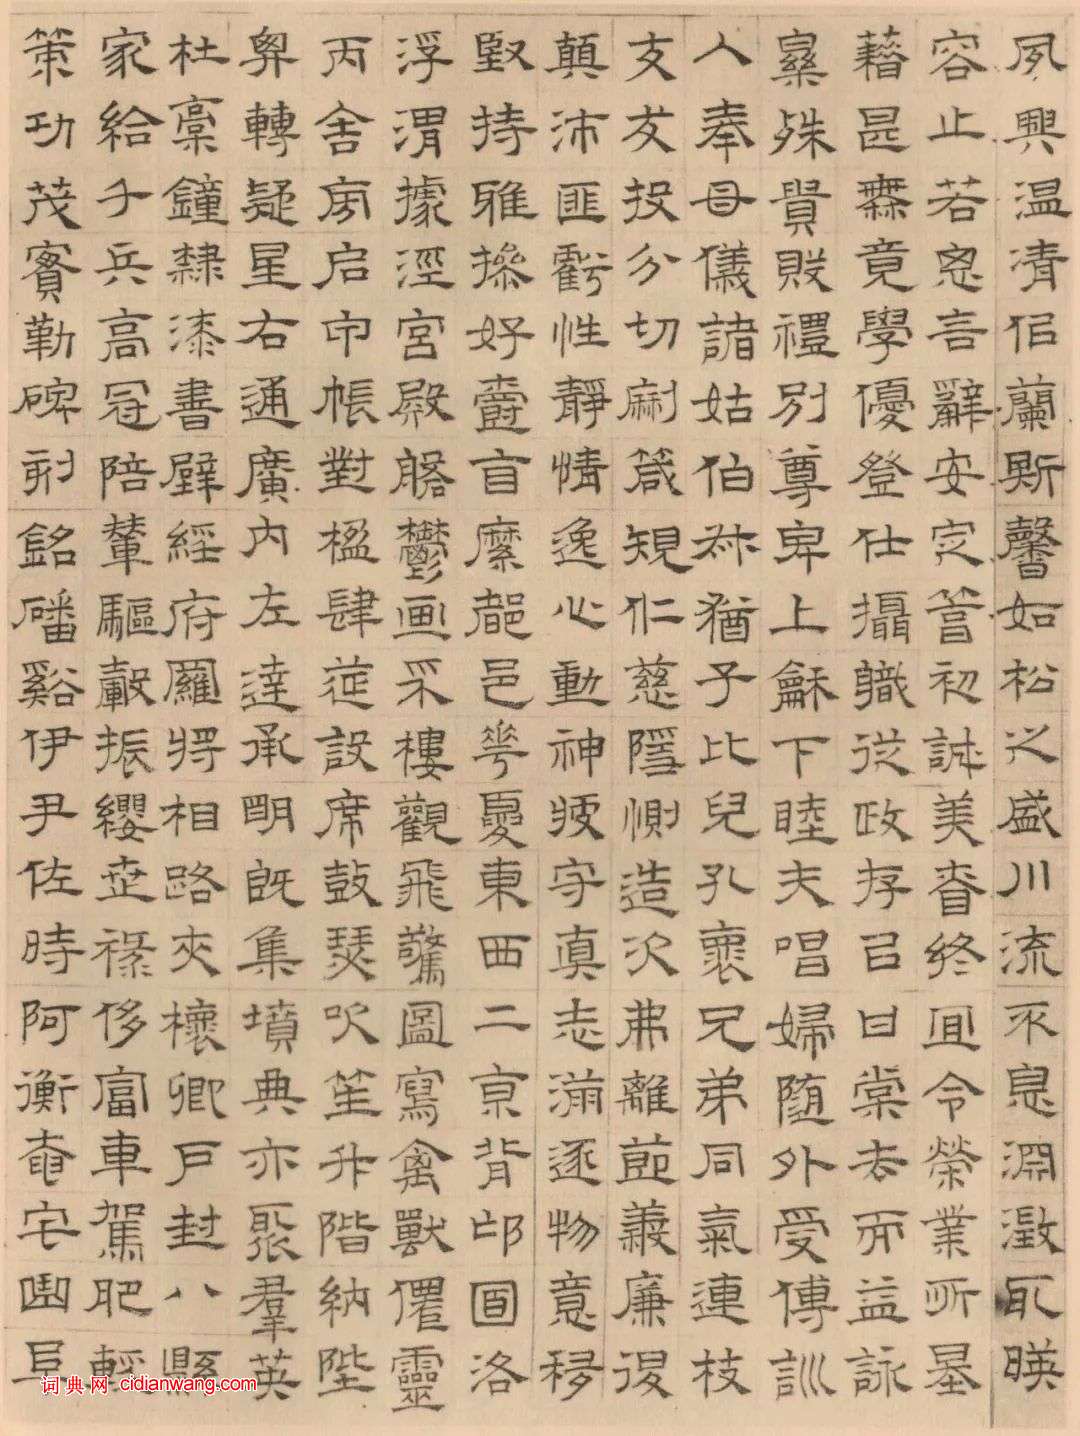 夙興温凊佀蘭斯馨如松之盛川流不息淵澂取暎
容止若思言辭安定篤初誠美昚終宜令榮業所基
藉甚無竟學優登仕攝職從政存以甘棠去而益詠
樂殊貴賤禮別尊卑上龢下睦夫唱婦随外受傅訓
入奉母儀諸姑伯叔猶子比兒孔褱兄弟同氣連枝
交友投分切磨箴規仁慈隱惻造次弗離節義廉退
顛沛匪虧性靜情逸心動神疲守真志滿逐物意移
堅持雅操好爵自縻都邑華夏東西二京背邙面洛
浮渭據涇宮殿盤鬱画采樓觀飛驚圖寫禽獸僊靈
丙舍房启甲帳對楹肆筵設席鼓瑟吹笙升階納陛
弁轉疑星右通廣內左達承明既集墳典亦聚羣英
杜稾鐘隸漆書壁經府羅將相路夾槐卿户封八縣
家給千兵高冠陪輦驅轂振纓世禄侈富車駕肥輕
策功茂實勒碑刻銘磻谿伊尹佐時阿衡奄宅曲阜
词典网 cidianwang.com